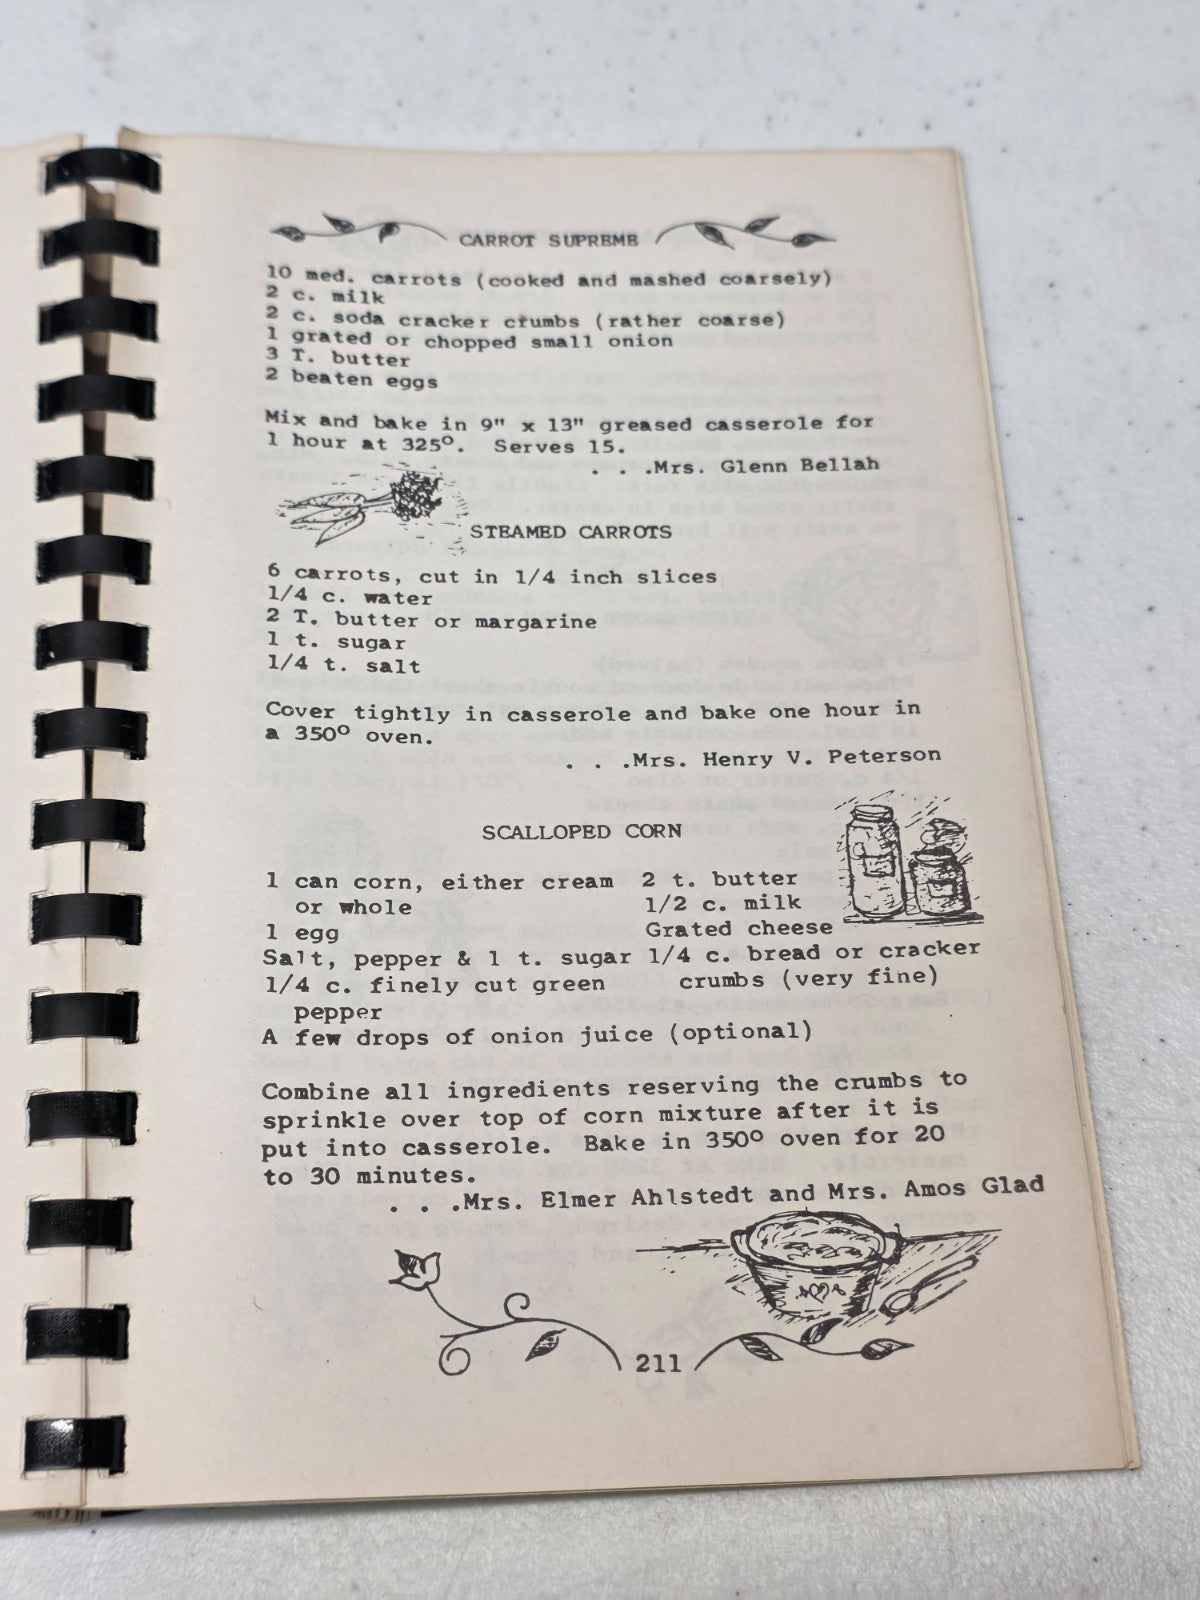 CARROT SUPREME
10 med. carrots (cooked and mashed coarsely)
2 c. milk
2 c. soda cracker crumbs (rather coarse)
1 grated or chopped small onion
3 T. butter
2 beaten eggs
Mix and bake in 9" x 13" greased casserole for
1 hour at 325°. Serves 15.
. . .Mrs. Glenn Bellah
STEAMED CARROTS
6 carrots, cut in 1/4 inch slices
1/4 c. water
2 T. butter or margarine
1 t. sugar
1/4 t. salt
Cover tightly in casserole and bake one hour in
a 350° oven.
. . .Mrs. Henry V. Peterson
SCALLOPED CORN
1 can corn, either cream 2 t. butter
or whole 1/2 c. milk
1 egg Grated cheese
Salt, pepper & 1 t. sugar 1/4 c. bread or cracker
1/4 c. finely cut green crumbs (very fine)
pepper
A few drops of onion juice (optional)
Combine all ingredients reserving the crumbs to
sprinkle over top of corn mixture after it is
put into casserole. Bake in 350° oven for 20
to 30 minutes.
. . .Mrs. Elmer Ahlstedt and Mrs. Amos Glad
211